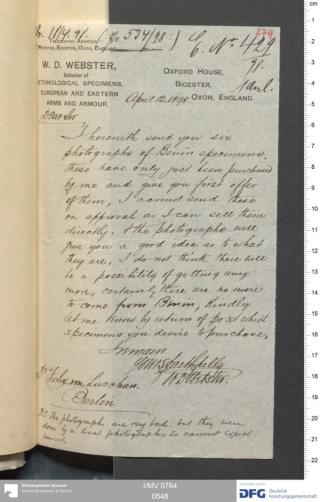 Pr. 18/4. 98. (Pr. 534/98.)
274
E. No 429
98.
TELEGRAPHIC ADDRESS
WEBSTER, BICESTER, OXON, ENGLAND
W. D. WEBSTER,
Collector of
ETHNOLOGICAL SPECIMENS,
EUROPEAN AND EASTERN
ARMS AND ARMOUR.
OXFORD HOUSE,
BICESTER,
OXON, ENGLAND.
April 12. 1898
Dear Sir
I herewith send you six
photographs of Benin specimens,
these have only just been purchased
by me and give you first offer
of them, I cannot send these
on approval as I can sell them
directly, & the photographs will
give you a good idea as to what
they are, I do not think there will
be a possibility of getting any
more, certainly there are no more
to come from Benin, Kindly
let me know by return of post which
specimens you desire to purchase,
I remain
Yours faithfully
W D Webster.
Dr
Felix von Luschan.
Berlin
P.S. The photographs are very bad, but they were
done by a local photographer so cannot expect
Ethnologisches Museum
Staatliche Museen zu Berlin
I/MV 0764
0548
DFG Deutsche
Forschungsgemeinschaft
cm
1
2
3
4
5
6
7
8
9
10
11
12
13
14
15
16
17
18
19
20
21
22